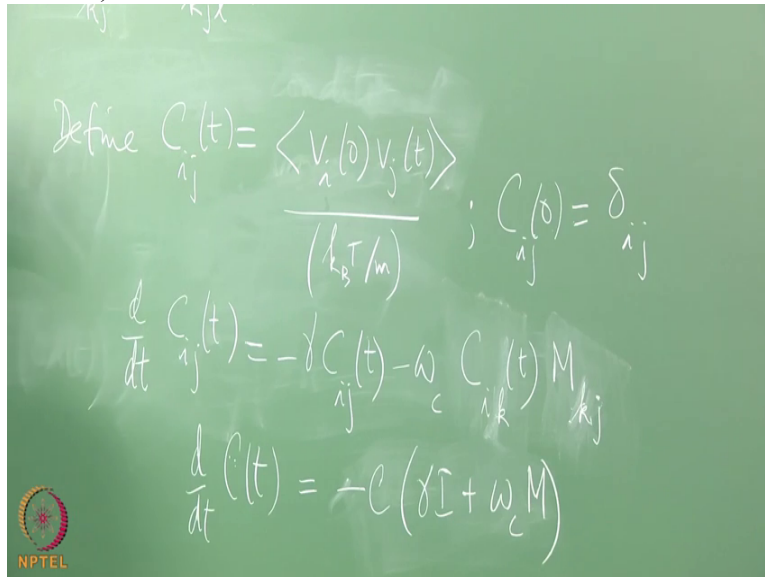 kj kjl
Define C_ij(t) = <v_i(0) v_j(t)> / (k_B T/m) ; C_ij(0) = δ_ij
d/dt C_ij(t) = -γ C_ij(t) - ω_c C_ik(t) M_kj
d/dt C(t) = -C (γI + ω_c M)
NPTEL